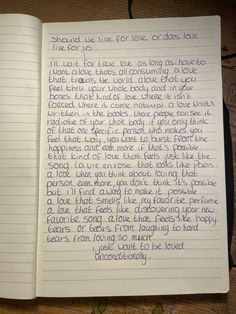 should we live for love or does love
live for us
i'll wait for true love as long as i have to
i want a love thats all consuming. a love
that travels the world. a love that you
feel thru your whole body and in your
bones. that kind of love where it isn't
forced. where it come natural. a love that's
written in the books. where people can see it
radiate of your whole body if you only think
of that one specific person who makes you
feel that way. you want to burst from the
happiness and even more if that's possible
that kind of love that feels just like the
song (la vie en rose. that looks like poem..
a love when you think about loving that
person even more, you don't think it's possible
but i'll find a way to make it possible
a love that smells like my favorite perfume
a love that feels like discovering your new
favorite song. a love that feels like happy
tears. or tears from laughing to hard
tears from loving so much
i just want to be loved
unconditionally.